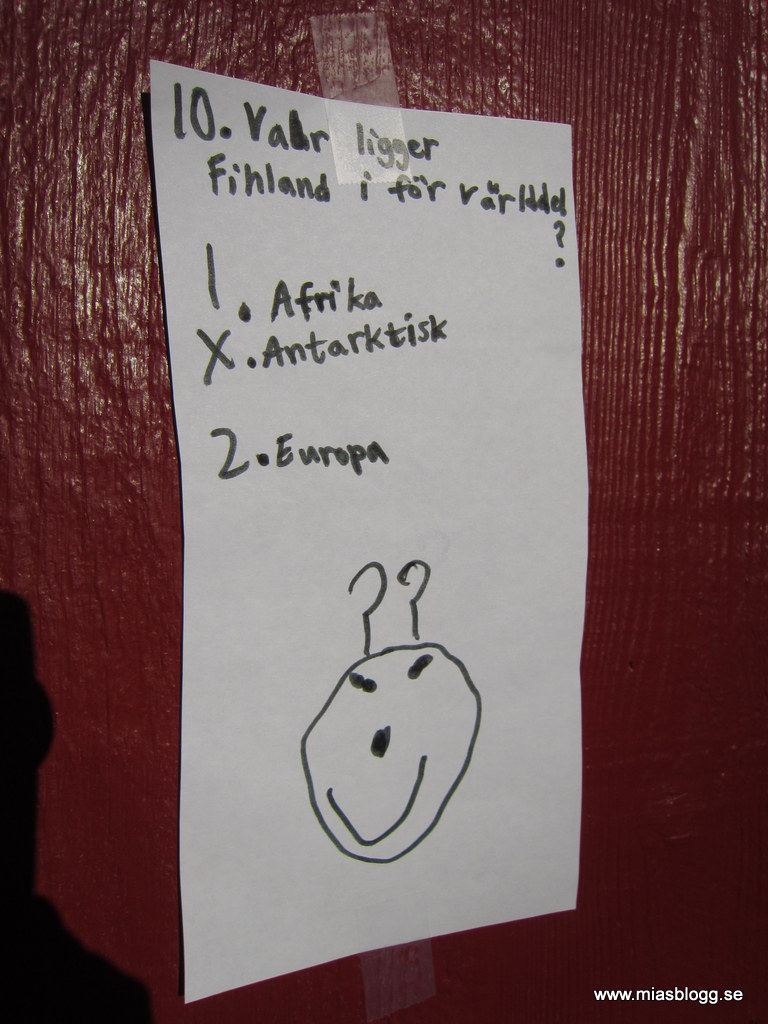 10. Valr ligger
Finland i för världdel
?
1. Afrika
X. Antarktisk
2. Europa
??
www.miasblogg.se